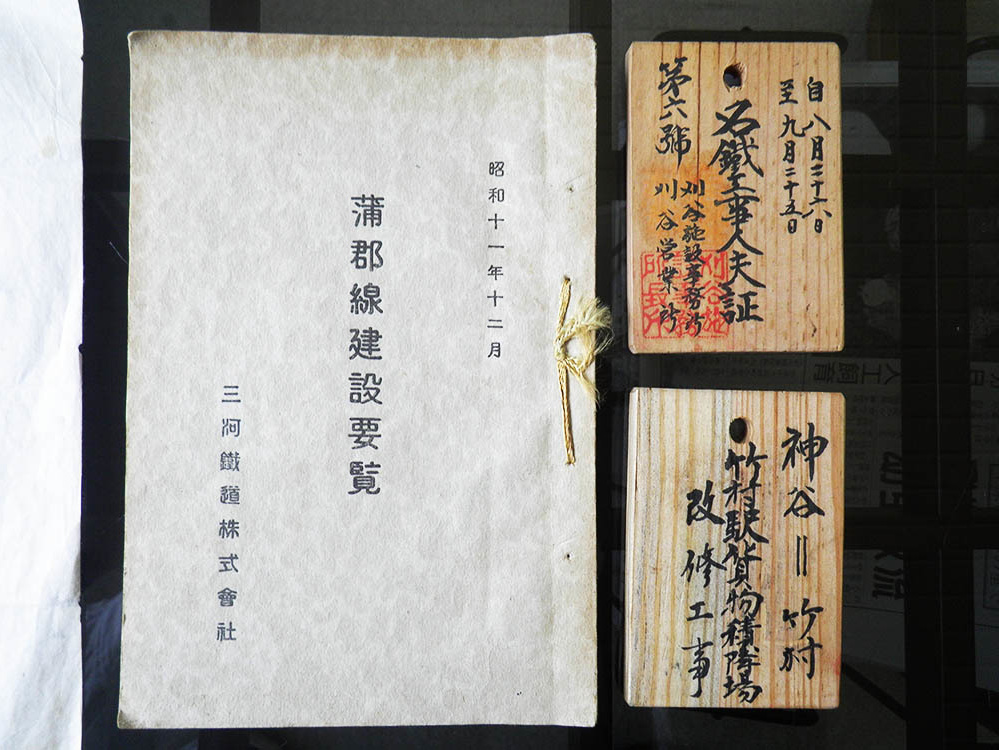 昭和十一年十二月
蒲郡線建設要覧
三河鐵道株式會社
自八月二十六日
至九月二十五日
名鐵工事人夫証
刈谷施設事務所
刈谷営業所
第六號
神谷=竹村
竹村駅貨物積降場
改修工事